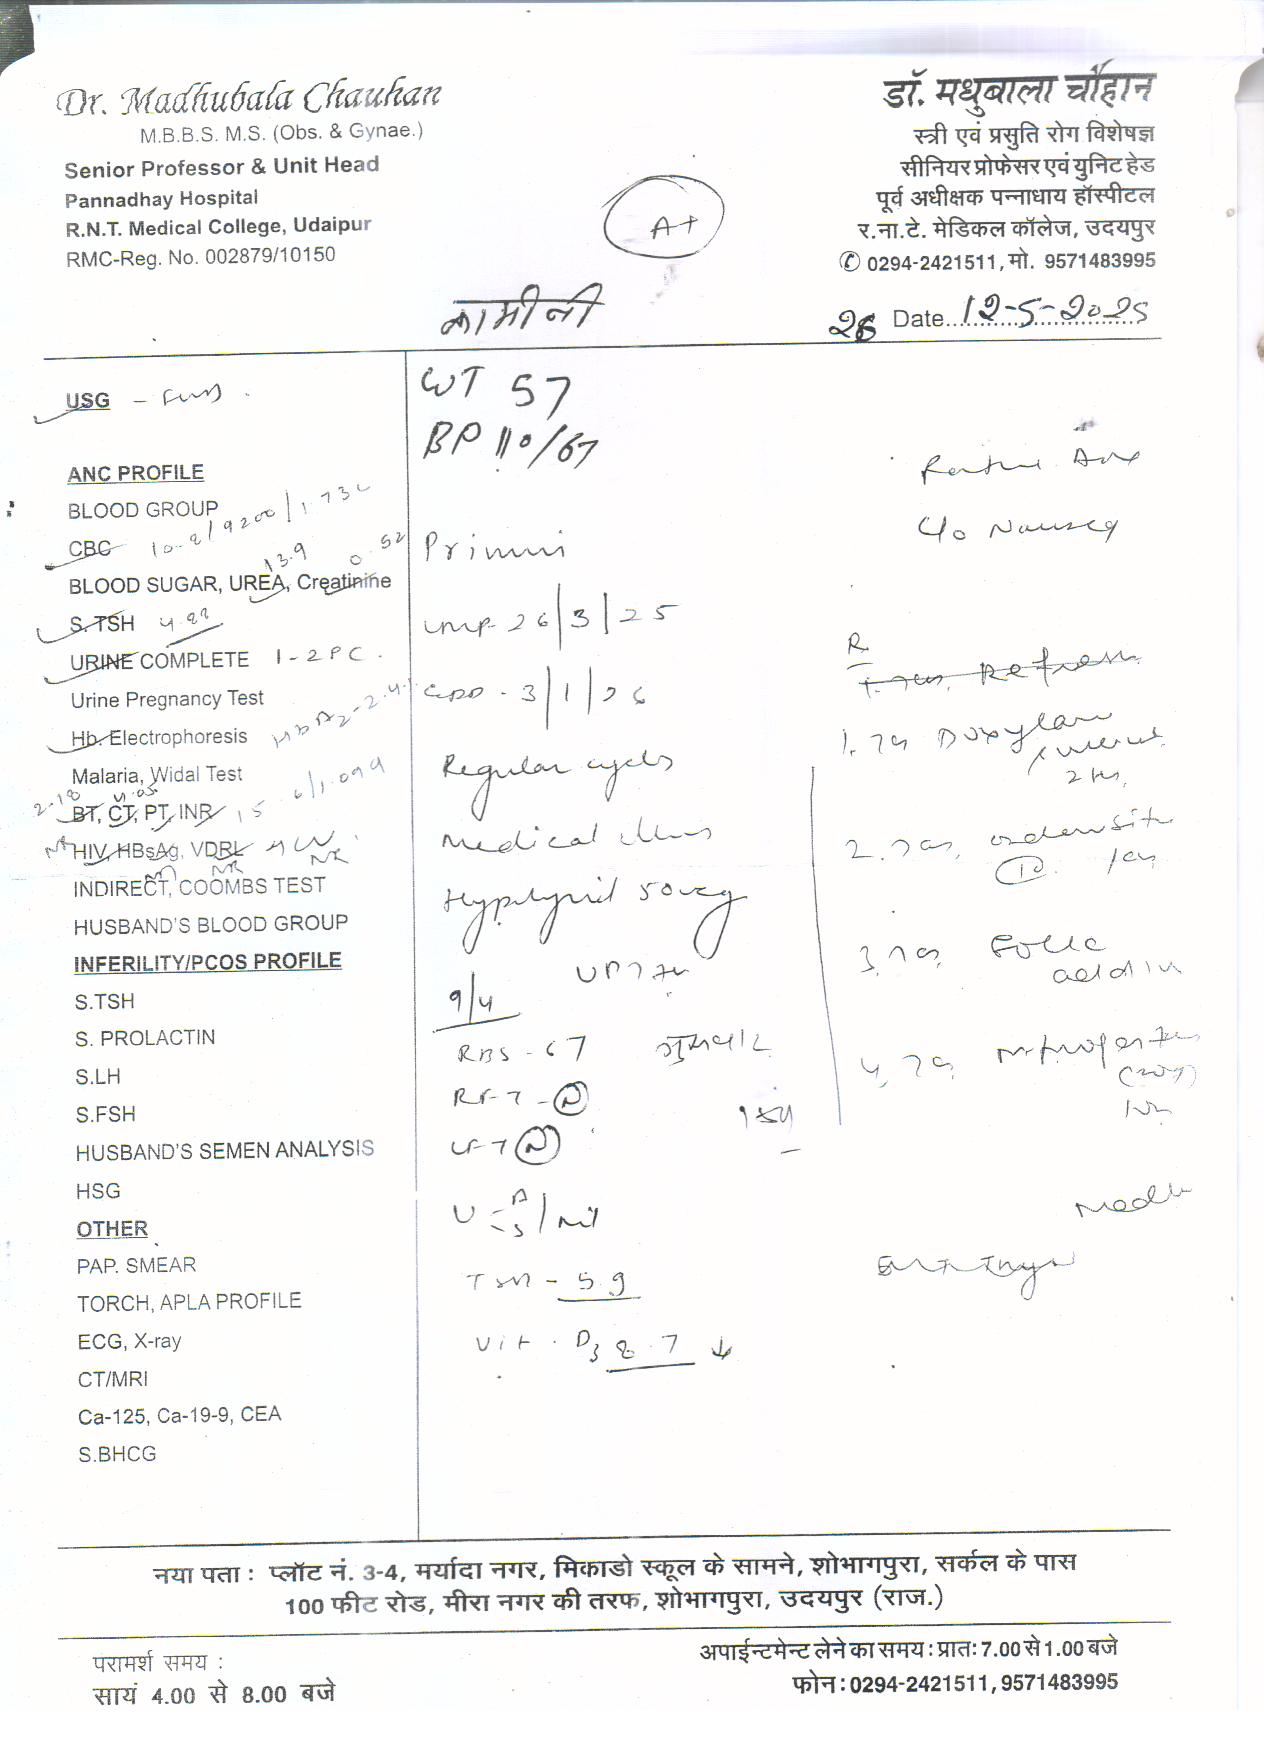 Dr. Madhubala Chauhan
M.B.B.S. M.S. (Obs. & Gynae.)
Senior Professor & Unit Head
Pannadhay Hospital
R.N.T. Medical College, Udaipur
RMC-Reg. No. 002879/10150
A+
डॉ. मधुबाला चौहान
स्त्री एवं प्रसुति रोग विशेषज्ञ
सीनियर प्रोफेसर एवं युनिट हेड
पूर्व अधीक्षक पन्नाधाय हॉस्पीटल
र.ना.टे. मेडिकल कॉलेज, उदयपुर
✆ 0294-2421511, मो. 9571483995
कामीनी
26 Date 12-5-2025
USG -
ANC PROFILE
BLOOD GROUP
CBC 10.2/9200/1.73
13.9 0.52
BLOOD SUGAR, UREA, Creatinine
S. TSH 4.22
URINE COMPLETE 1-2 PC.
Urine Pregnancy Test
Hb. Electrophoresis HbA2-2.4
Malaria, Widal Test
BT, CT, PT, INR 15.6/1.099
HIV, HBsAg, VDRL NR
INDIRECT, COOMBS TEST
HUSBAND'S BLOOD GROUP
INFERILITY/PCOS PROFILE
S.TSH
S. PROLACTIN
S.LH
S.FSH
HUSBAND'S SEMEN ANALYSIS
HSG
OTHER
PAP. SMEAR
TORCH, APLA PROFILE
ECG, X-ray
CT/MRI
Ca-125, Ca-19-9, CEA
S.BHCG
WT 57
BP 110/67
Primi
LMP- 26/3/25
EDD - 3/1/26
Regular cycles
Medical illness
50 mcg
UPT +ve
9/4
RBS - 67
RFT - N
LFT N
U - A/S / nil
TSH - 5.9
Vit. D3 8.7 ↓
गुरुवार
Routine ANC
C/o Nausea
R
1. Tab Doxylam
2. Tab
3. Tab Folic acid
4. Tab
नया पता : प्लॉट नं. 3-4, मर्यादा नगर, मिकाडो स्कूल के सामने, शोभागपुरा, सर्कल के पास
100 फीट रोड, मीरा नगर की तरफ, शोभागपुरा, उदयपुर (राज.)
परामर्श समय :
सायं 4.00 से 8.00 बजे
अपाईन्टमेन्ट लेने का समय : प्रातः 7.00 से 1.00 बजे
फोन : 0294-2421511, 9571483995